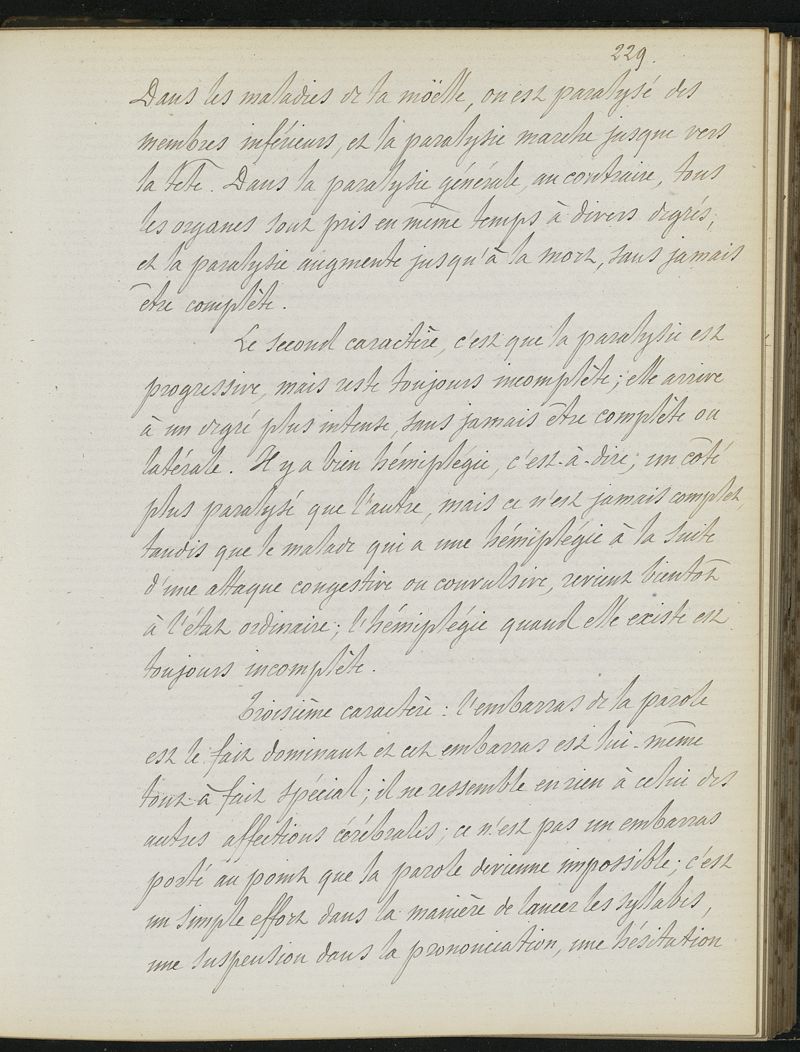 229.
Dans les maladies de la möelle, on est paralysé des
membres inférieurs, et la paralysie marche jusque vers
la tête. Dans la paralysie générale, au contraire, tous
les organes sont pris en même temps à divers degrés,
et la paralysie augmente jusqu'à la mort, sans jamais
être complète.
Le second caractère, c'est que la paralysie est
progressive, mais reste toujours incomplète; elle arrive
à un degré plus intense, sans jamais être complète ou
latérale. Il y a bien hémiplégie, c'est-à-dire, un côté
plus paralysé que l'autre, mais ce n'est jamais complet
tandis que le malade qui a une hémiplégie à la suite
d'une attaque congestive ou convulsive, revient bientôt
à l'état ordinaire; l'hémiplégie quand elle existe est
toujours incomplète.
Troisième caractère: l'embarras de la parole
est le fait dominant et cet embarras est lui-même
tout à fait spécial; il ne ressemble en rien à celui des
autres affections cérébrales; ce n'est pas un embarras
porté au point que la parole devienne impossible; c'est
un simple effort dans la manière de lancer les syllabes,
une suspension dans la prononciation, une hésitation